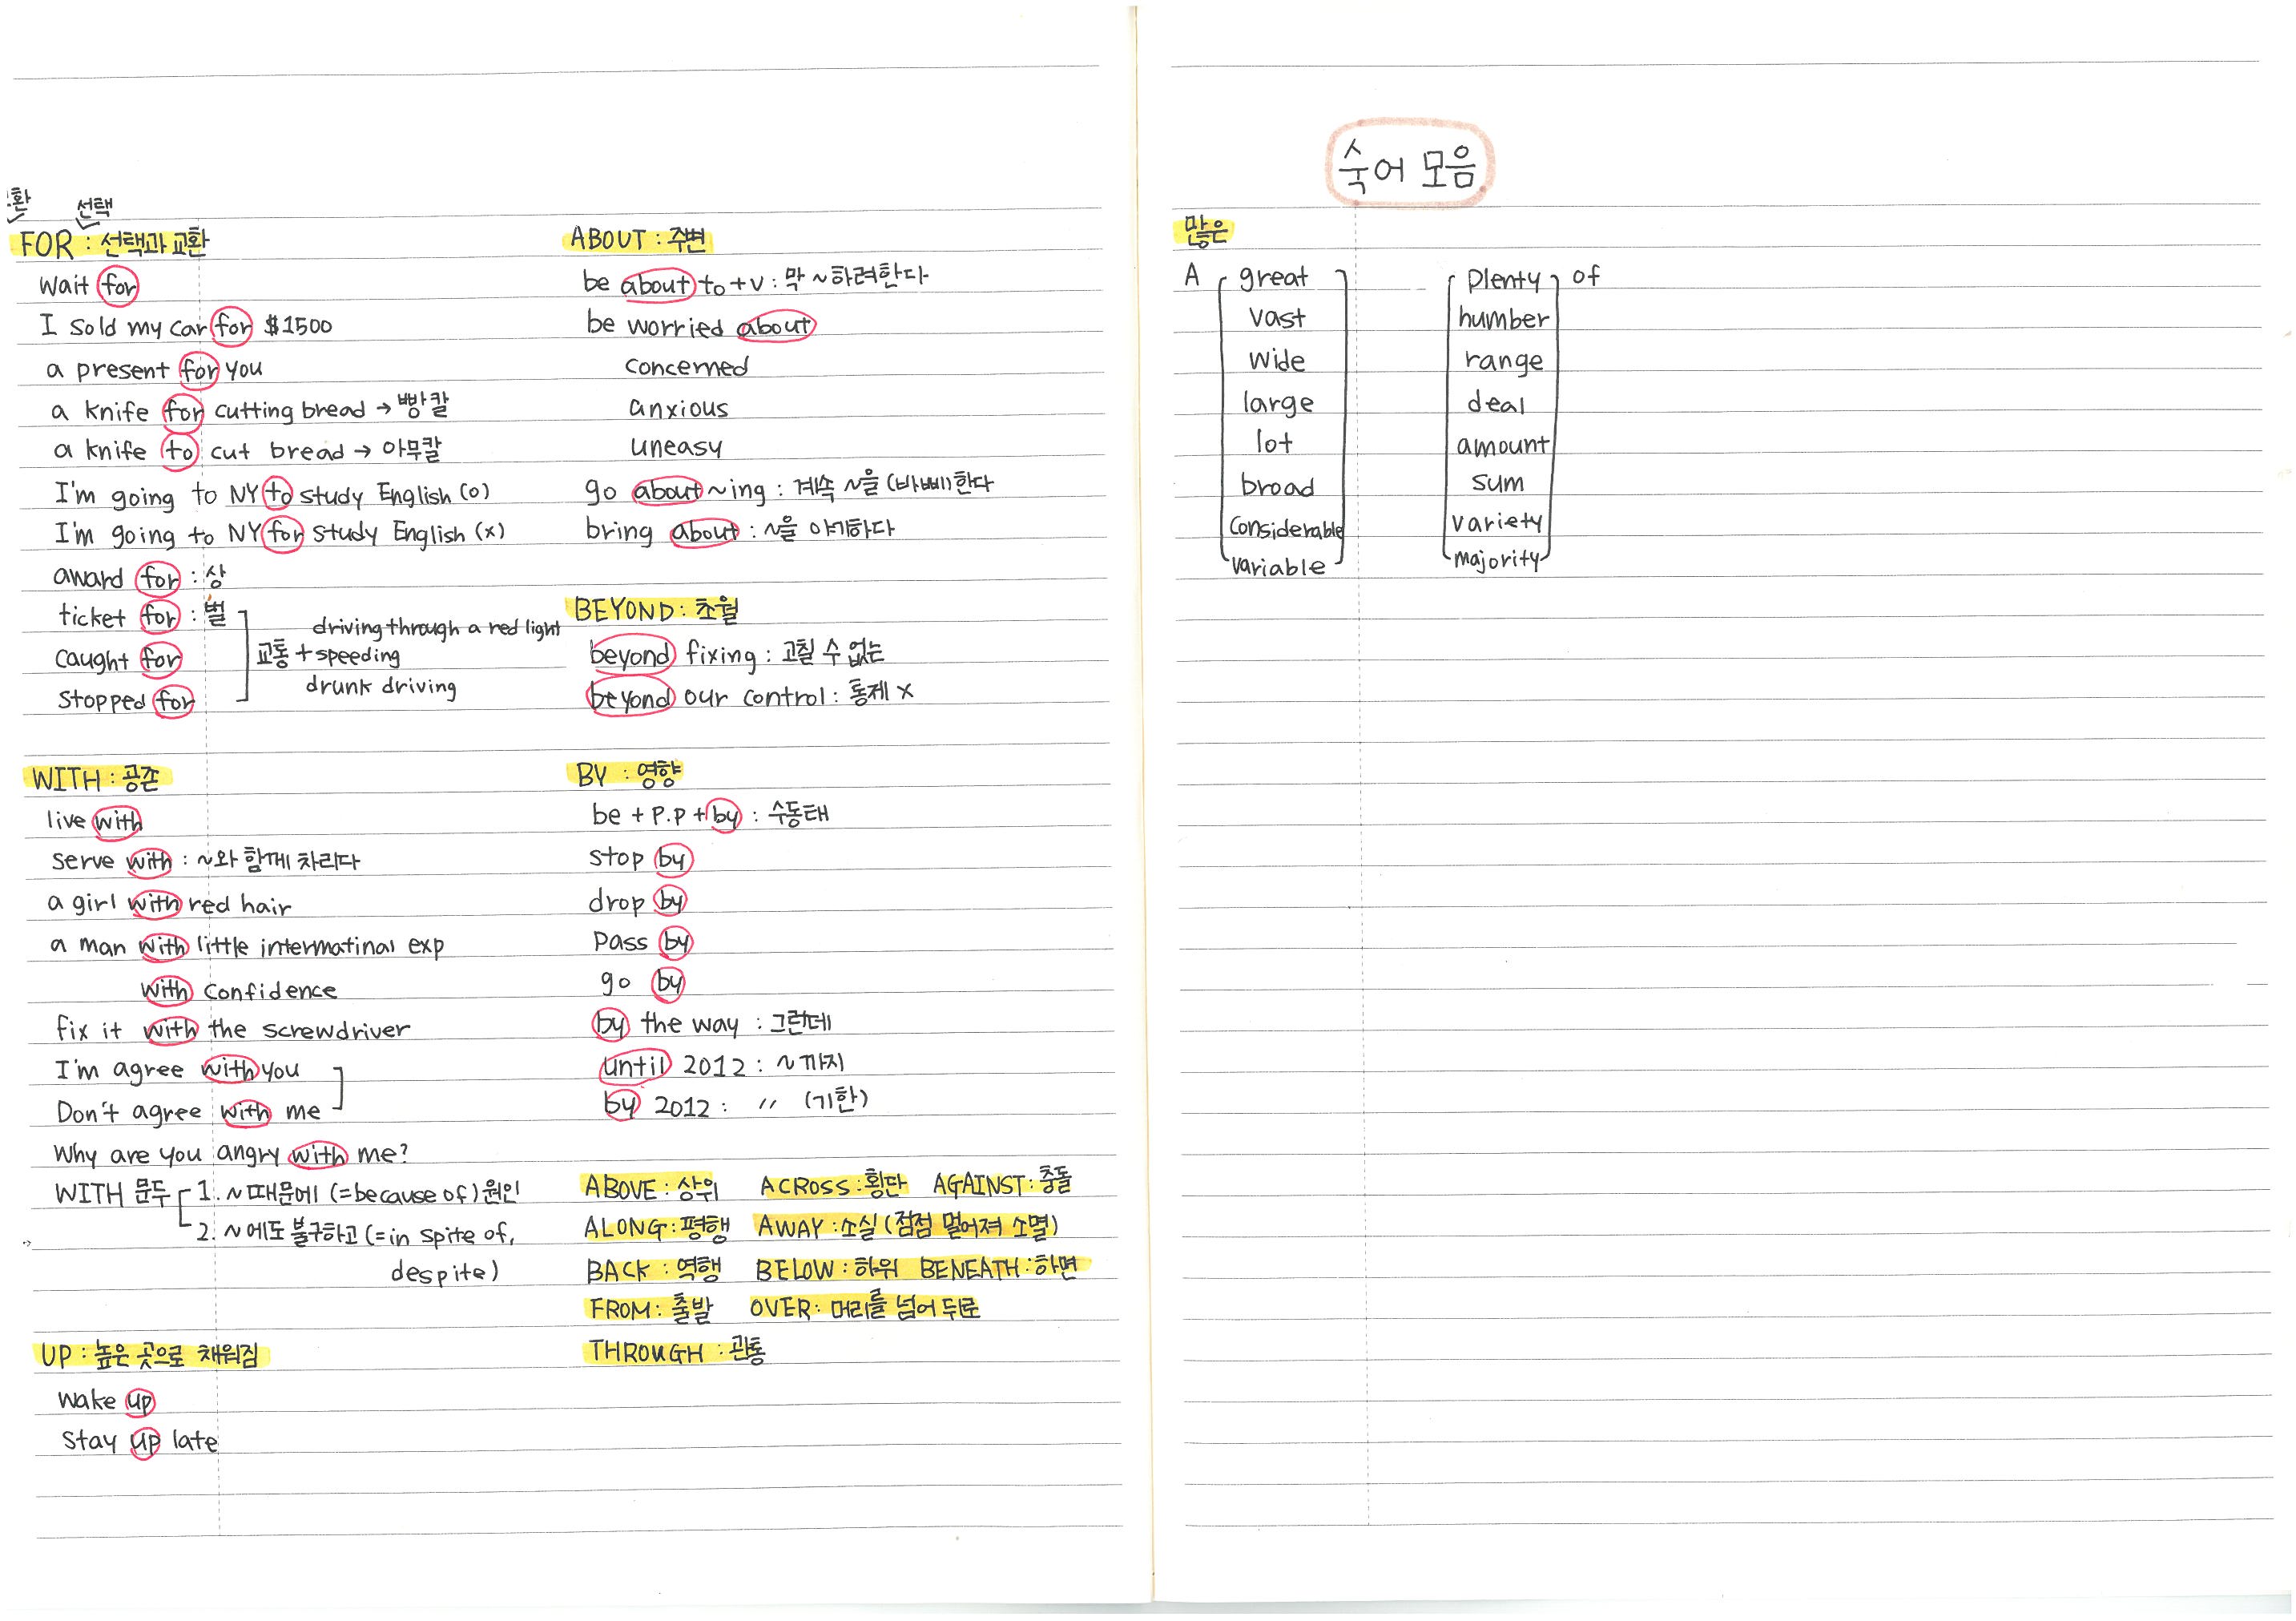 환 선택
FOR : 선택과 교환
wait for
I sold my car for $1500
a present for you
a knife for cutting bread → 빵칼
a knife to cut bread → 아무칼
I'm going to NY to study English (o)
I'm going to NY for study English (x)
award for : 상
ticket for : 벌
caught for
stopped for
driving through a red light
교통 + speeding
drunk driving
WITH : 공존
live with
serve with : ~와 함께 차리다
a girl with red hair
a man with little intermatinal exp
with confidence
fix it with the screwdriver
I'm agree with you
Don't agree with me
Why are you angry with me?
WITH 문두 1. ~때문에 (=because of) 원인
2. ~에도 불구하고 (=in spite of,
despite)
UP : 높은 곳으로 채워짐
wake up
stay up late
ABOUT : 주변
be about to + v : 막 ~하려한다
be worried about
concerned
anxious
uneasy
go about ~ing : 계속 ~을 (바삐) 한다
bring about : ~을 야기하다
BEYOND : 초월
beyond fixing : 고칠 수 없는
beyond our control : 통제 x
BY : 영향
be + P.P + by : 수동태
stop by
drop by
pass by
go by
by the way : 그런데
until 2012 : ~까지
by 2012 : 〃 (기한)
ABOVE : 상위 ACROSS : 횡단 AGAINST : 충돌
ALONG : 평행 AWAY : 소실 (점점 멀어져 소멸)
BACK : 역행 BELOW : 하위 BENEATH : 하면
FROM : 출발 OVER : 머리를 넘어 뒤로
THROUGH : 관통
숙어 모음
많은
A great plenty of
vast number
wide range
large deal
lot amount
broad sum
considerable variety
variable majority